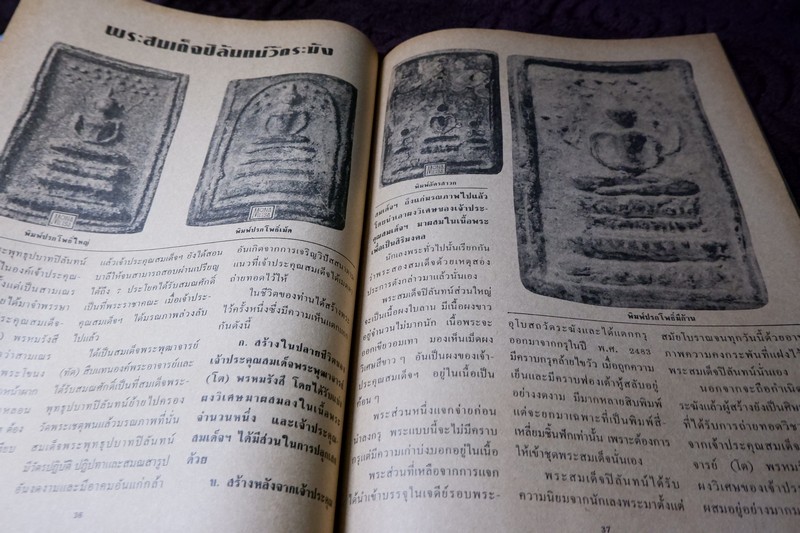 พระสมเด็จปิลันทน์วัดระฆัง
พิมพ์ปรกโพธิ์ใหญ่
พิมพ์ปรกโพธิ์เม็ด
พุทธุปบาทปิลันทน์
ในองค์เจ้าประคุณ-
แต่เป็นสามเณร
ได้มาจำพรรษา
เจ้าประคุณสมเด็จ-
พรหมรังสี
ว่าสามเณร
แล้วเจ้าประคุณสมเด็จฯ ยังได้สอน
บาลีให้จนสามารถสอบผ่านเปรียญ
ได้ถึง ๗ ประโยคได้รับสมณศักดิ์
เป็นที่พระราชาคณะ เมื่อเจ้าประ-
คุณสมเด็จฯ ได้มรณภาพล่วงลับ
ไปแล้ว
ได้เป็นสมเด็จพระพุฒาจารย์
(ทัด) สืบแทนองค์พระอาจารย์และ
ได้รับสมณศักดิ์เป็นที่สมเด็จพระ-
พุทธุปบาทปิลันทน์ย้ายไปครอง
วัดพระเชตุพนแล้วมรณภาพที่นั่น
สมเด็จพระพุทธุปบาทปิลันทน์
มีวัตรปฏิบัติ ปฏิปทาและสมณสารูป
อันงดงามและมีอาคมอันแก่กล้า
อันเกิดจากการเจริญวิปัสสนา
แนวที่เจ้าประคุณสมเด็จได้
ถ่ายทอดไว้ให้
ในชีวิตของท่านได้สร้างพระ
ไว้ครั้งหนึ่งซึ่งมีความเห็นแตก
กันดังนี้
ก. สร้างในปลายชีวิตของ
เจ้าประคุณสมเด็จพระพุฒาจารย์
(โต) พรหมรังสี โดยได้รับ
ผงวิเศษมาผสมลงในเนื้อพระ
จำนวนหนึ่ง และเจ้าประคุณ-
สมเด็จฯ ได้มีส่วนในการปลุกเสก
ด้วย
ข. สร้างหลังจากเจ้าประคุณ
36
พิมพ์อัครสาวก
สมเด็จฯ ถึงแก่มรณภาพไปแล้ว
โดยนำเอาผงวิเศษของเจ้าประ-
คุณสมเด็จฯ มาผสมในเนื้อพระ
เพื่อเป็นสิริมงคล
นักเลงพระทั่วไปนั้นเรียกกัน
ว่าพระสองสมเด็จด้วยเหตุสอง
ประการดังกล่าวมาแล้วนั่นเอง
พระสมเด็จปิลันทน์ส่วนใหญ่
จะเป็นเนื้อผงใบลาน มีเนื้อผงขาว
อยู่จำนวนไม่มากนัก เนื้อพระจะ
ออกเขียวอมเทา มองเห็นเม็ดผง
วิเศษสีขาว ๆ อันเป็นผงของเจ้า-
ประคุณสมเด็จฯ อยู่ในเนื้อเป็น
พระส่วนหนึ่งแจกจ่ายก่อน
นำลงกรุ พระแบบนี้จะไม่มีคราบ
กรุแต่มีความเก่าบ่งบอกอยู่ในเนื้อ
พระส่วนที่เหลือจากการแจก
ได้นำเข้าบรรจุในเจดีย์รอบพระ-
พิมพ์ปรกโพธิ์มีก้าน
อุโบสถวัดระฆังและได้แตกกรุ
ออกมาจากกรุในปี พ.ศ. 2483
มีคราบกรุคล้ายไขวัว เมื่อถูกความ
เย็นและมีคราบฟองเต้าหู้สลับอยู่
อย่างงดงาม มีมากหลายสิบพิมพ์
แต่จะยกมาเฉพาะที่เป็นพิมพ์สี่-
เหลี่ยมชิ้นฟักเท่านั้น เพราะต้องการ
ให้เข้าชุดพระสมเด็จนั่นเอง
พระสมเด็จปิลันทน์ได้รับ
ความนิยมจากนักเลงพระมาตั้งแต่
สมัยโบราณจนทุกวันนี้ด้วยอา
ภาพความคงกระพันที่แฝงไว้
พระสมเด็จปิลันทน์นั่นเอง
นอกจากจะถือกำเนิด
มาแล้วผู้สร้างยังเป็นศิษ
ที่ได้รับการถ่ายทอดวิช
จากเจ้าประคุณสมเด็จ
จารย์ (โต) พรหมรัง
ผงวิเศษของเจ้าประ
ผสมอยู่อย่างมากม
37